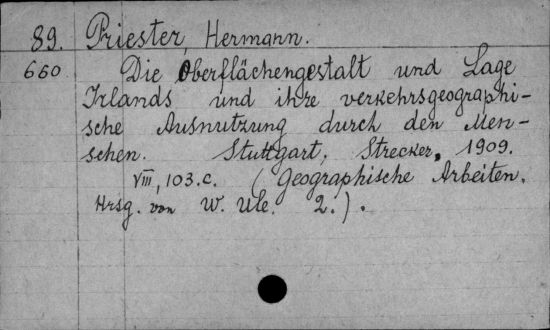 89. Priester, Hermann.
660 Die Oberflächengestalt und Lage
Irlands und ihre verkehrsgeographi-
sche Ausnutzung durch den Men-
schen. Stuttgart, Strecker, 1909.
VIII, 103.c. (Geographische Arbeiten.
Hrsg. von W. Ule. 2.).